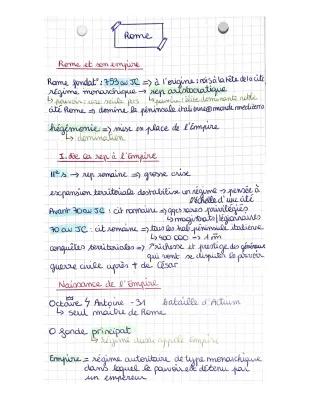 Rome
Rome et son empire
Rome fondat°: 753 av JC => à l'origine: rois à la tête de la cité
régime monarchique → rep aristocratique
↳ pouvoir: une seule pers ↳ pouvoir: élite dominante noble
cité Rome => domine la péninsule italienne monde méditerr
hégémonie => mise en place de l'Empire
↳ domination
I. de la rep à l'Empire
IIe s → rep romaine => grosse crise
expansion territoriale destabilise un régime → pensée à
l'échelle d'une cité
Avant 70 av JC: cit romaine => qqes rares privilégiés
↳ magistrats / légionnaires
70 av JC: cit romaine => tous les hab péninsule italienne
↳ 400 000 → 1 m
conquêtes territoriales => richesse et prestige des généraux
qui vont se disputer le pouvoir
guerre civile après + de César
Naissance de l'Empire
Octave Antoine -31 bataille d'Actium
↳ seul maître de Rome
O fonde principat
↳ régime aussi appelé Empire
Empire = régime autoritaire de type monarchique
dans lequel le pouvoir est détenu par
un empereur